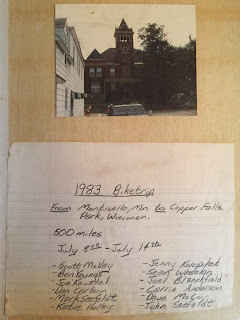 1983 Biketrip
From Monticello, Mn to Copper Falls
Park, Wisconsin.
500 miles
July 8th - July 14th
- Scott McVey
- Ben Youngs
- Joe
- Dan Carlson
- Mark Seefeldt
- Katie Holley
- Jenny
- Sean
- Joel
- Carrie Anderson
- Dave McCoy
- John Seefeldt